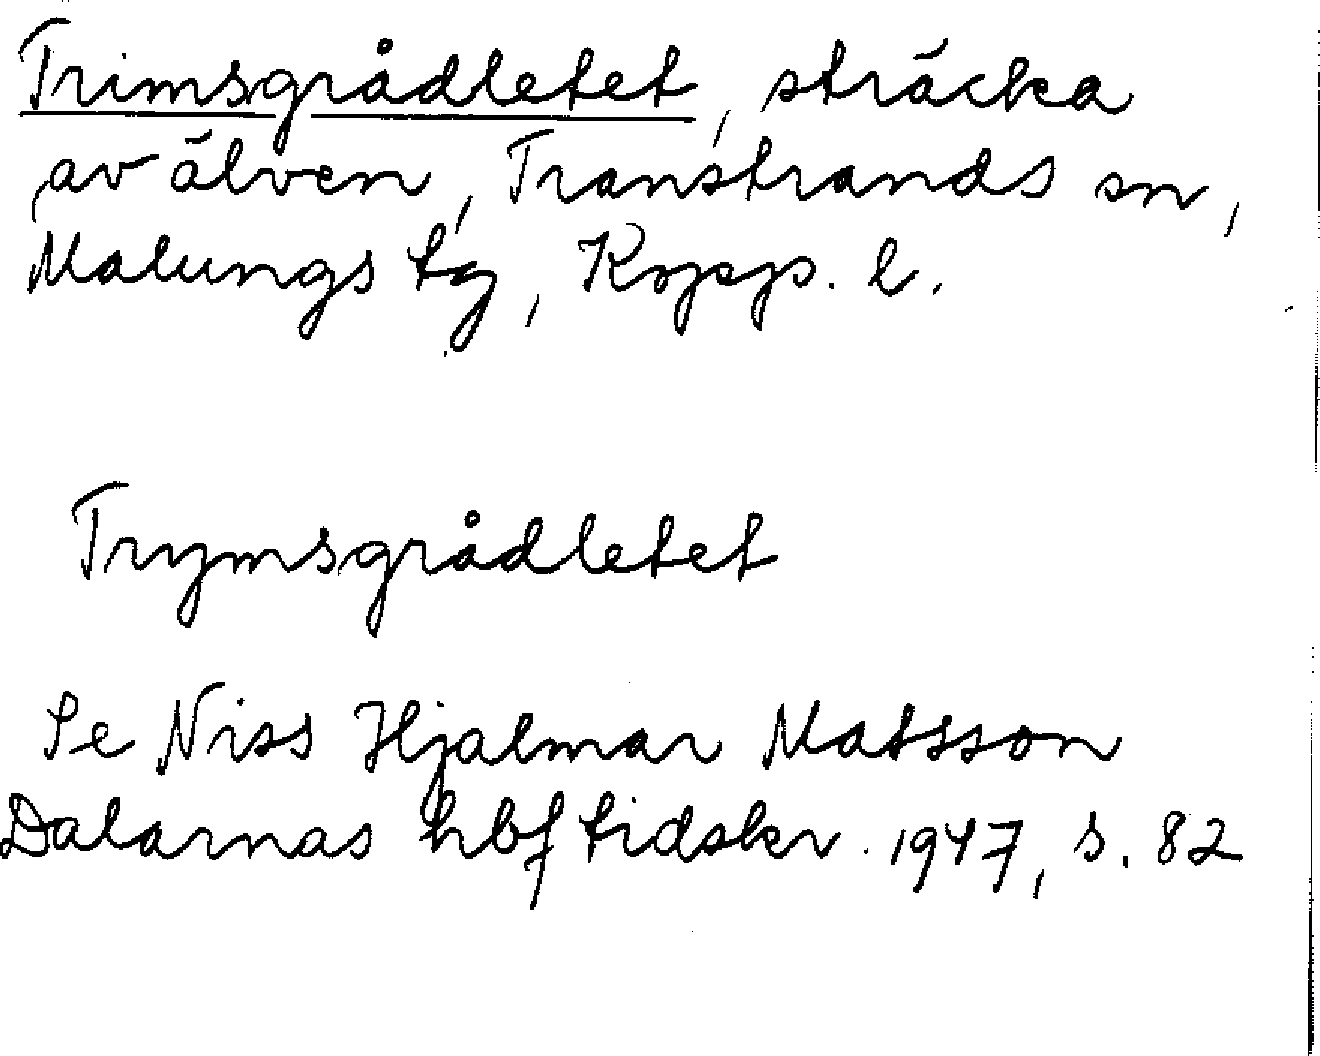 Trimsgrådletet, sträcka
av älven, Transtrands sn,
Malungs tg, Kopp. l.
Trymsgrådletet
Se Niss Hjalmar Matsson
Dalarnas hbf tidskr. 1947, s. 82